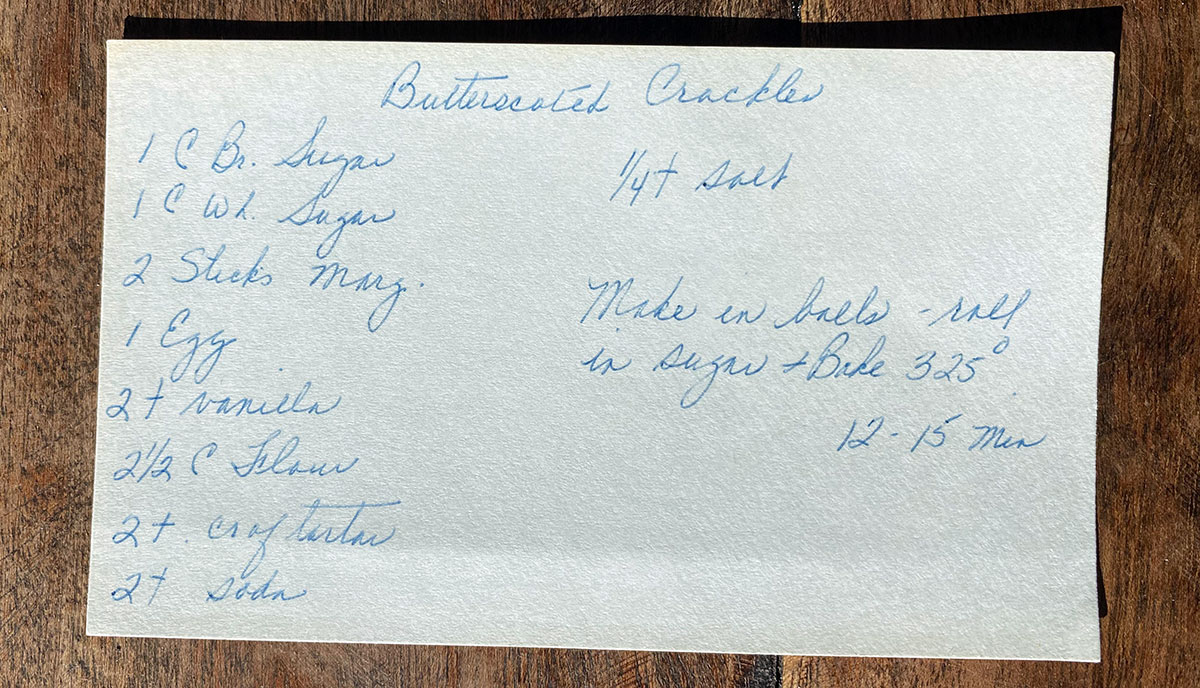 Butterscoted Crackles
1 C Br. Sugar
1 C Wh. Sugar
2 Sticks Marg.
1 Egg
2 t vanilla
2 1/2 C Flour
2 t. cr of tartar
2 t soda
1/4 t salt
Make in balls - roll
in sugar + Bake 325°
12 - 15 Min